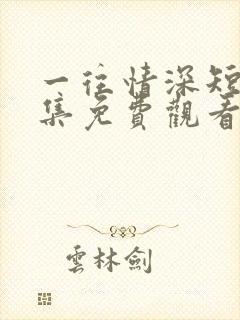 一往情深短
集免費觀看
雲林劍